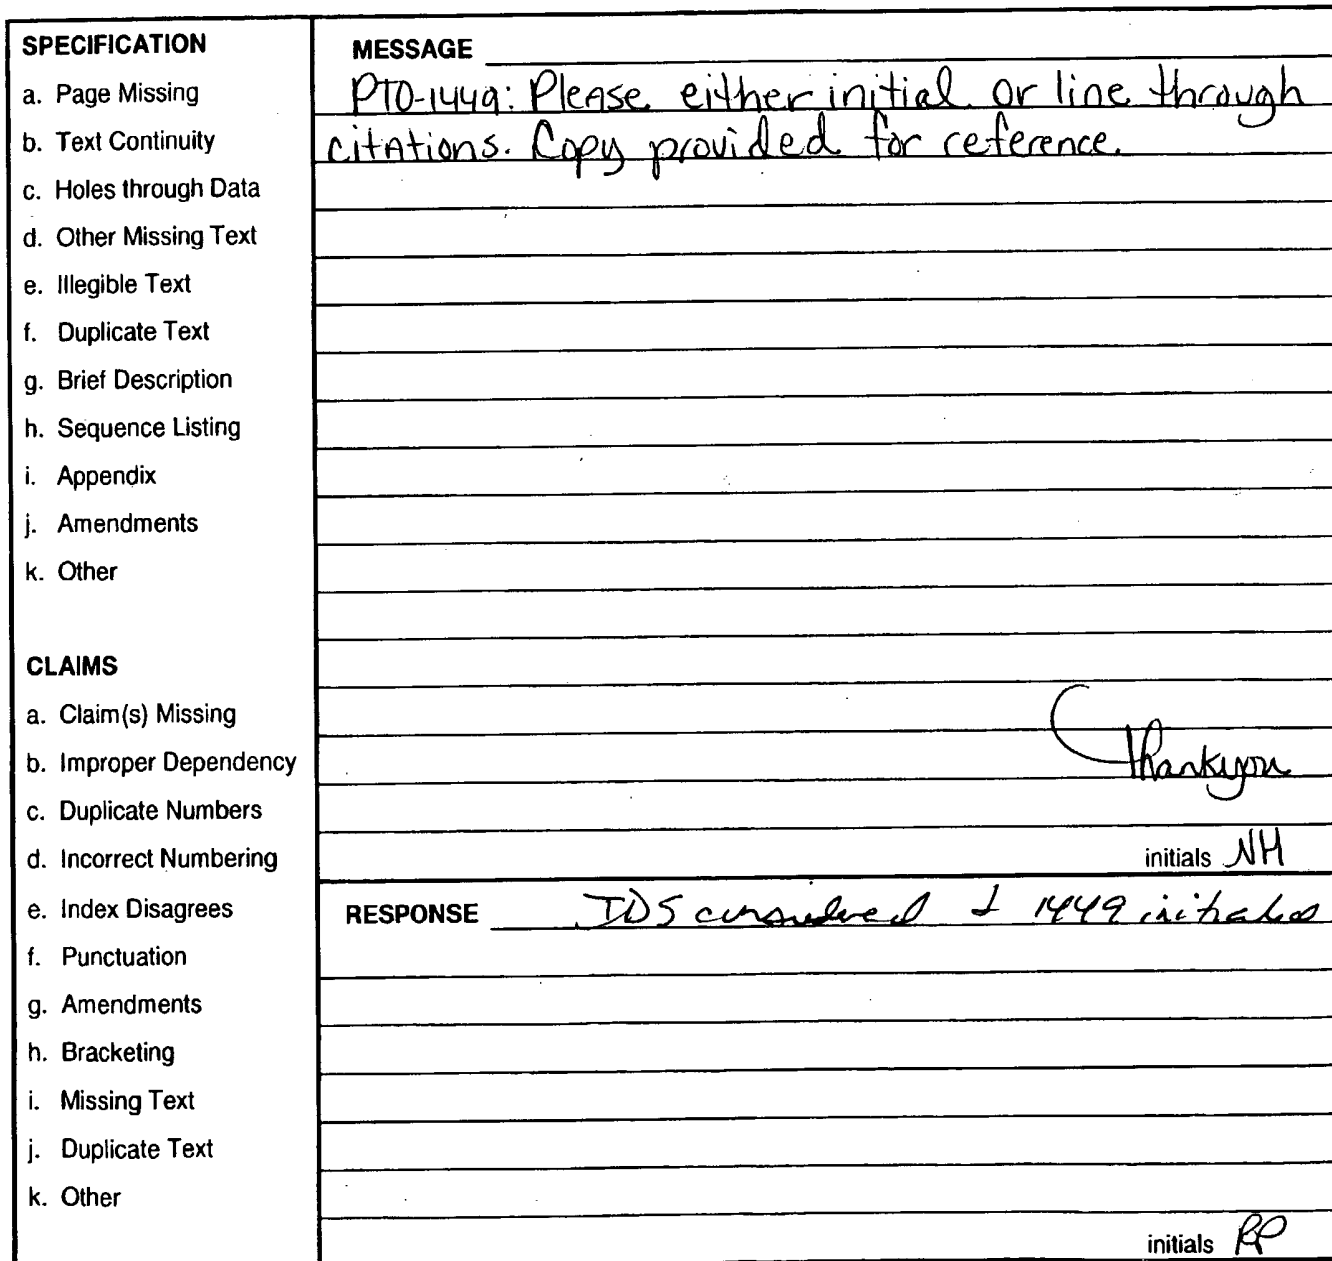 SPECIFICATION
a. Page Missing
b. Text Continuity
c. Holes through Data
d. Other Missing Text
e. Illegible Text
f. Duplicate Text
g. Brief Description
h. Sequence Listing
i. Appendix
j. Amendments
k. Other
CLAIMS
a. Claim(s) Missing
b. Improper Dependency
c. Duplicate Numbers
d. Incorrect Numbering
e. Index Disagrees
f. Punctuation
g. Amendments
h. Bracketing
i. Missing Text
j. Duplicate Text
k. Other
MESSAGE
PTO-1449: Please either initial or line through
citations. Copy provided for reference.
Thank you
initials NH
RESPONSE IDS considered & 1449 initialed
initials RP